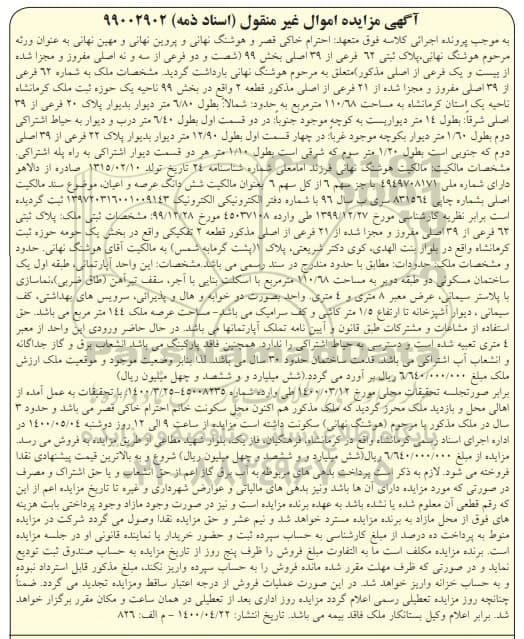 آگهی مزایده اموال غیر منقول (اسناد ذمه) ۹۹۰۰۲۹۰۲
به موجب پرونده اجرائی کلاسه فوق متعهد: احترام خاکی قصر و هوشنگ نهانی و پروین نهانی و مهین نهانی به عنوان ورثه
مرحوم هوشنگ نهانی،پلاک ثبتی ۶۲ فرعی از ۳۹ اصلی بخش ۹۹ (شصت و دو فرعی از سه و نه اصلی مفروز و مجزا شده
از بیست و یک فرعی از اصلی مذکور)متعلق به مرحوم هوشنگ نهانی بازداشت گردید. مشخصات ملک به شماره ۶۲ فرعی
از ۳۹ اصلی مفروز و مجزا شده از ۲۱ فرعی از اصلی مذکور قطعه ۲ واقع در بخش ۹۹ ناحیه یک حوزه ثبت ملک کرمانشاه
ناحیه یک استان کرمانشاه به مساحت ۱۱۰/۶۸ مترمربع به حدود: شمالاً: بطول ۶/۸۰ متر دیوار بدیوار پلاک ۲۰ فرعی از ۳۹
اصلی شرقاً: بطول ۱۴ متر دیواریست به کوچه موجود جنوباً: در دو قسمت اول بطول ۶/۴۰ متر درب و دیوار به حیاط اشتراکی
دوم بطول ۱/۶۰ متر دیوار بکوچه موجود غرباً: در چهار قسمت اول بطول ۱۲/۹۰ متر دیوار بدیوار پلاک ۲۲ فرعی از ۳۹ اصلی
دوم که جنوبی است بطول ۱/۲۰ متر سوم که شرقی است بطول ۱/۱۰ متر هر دو قسمت دیوار اشتراکی به راه پله اشتراکی.
مشخصات مالکیت: مالکیت هوشنگ نهانی فرزند امامعلی شماره شناسنامه ۲۴ تاریخ تولد ۱۳۱۵/۰۲/۱۰ صادره از دالاهو
دارای شماره ملی ۴۹۴۹۷۰۸۱۷۱ با جز سهم ۶ از کل سهم ۶ بعنوان مالکیت شش دانگ عرصه و اعیان، موضوع سند مالکیت
اصلی بشماره چاپی ۸۳۱۵۶۴ سری د سال ۹۶ با شماره دفتر الکترونیکی الکترونیک ۱۳۹۷۲۰۳۱۶۰۰۱۰۰۹۱۴۳ ثبت گردیده
است برابر نظریه کارشناسی مورخ ۱۳۹۹/۱۲/۲۷ طی وارده ۴۵۰۳۷۱۰۸ مورخ ۹۹/۱۲/۲۸: مشخصات ثبتی ملک: پلاک ثبتی
۶۲ فرعی از ۳۹ اصلی مفروز و مجزا شده از ۲۱ فرعی از اصلی مذکور قطعه ۲ تفکیکی واقع در بخش یک حومه حوزه ثبت
کرمانشاه واقع در بلوار بنت الهدی، کوی دکتر شریعتی، پلاک ۱(پشت گرمابه شمس) به مالکیت آقای هوشنگ نهانی. حدود
و مشخصات ملک: حدودات: مطابق با حدود مندرج در سند رسمی می باشد.مشخصات: این واحد آپارتمانی، طبقه اول یک
ساختمان مسکونی دو طبقه دوبر به مساحت ۱۱۰/۶۸ مترمربع با اسکلت بنایی با آجر، سقف تیرآهن (طاق ضربی)،نماسازی
با پلاستر سیمانی، عرض معبر ۸ متری و ۴ متری، واحد بصورت دو خوابه و هال و پذیرائی، سرویس های بهداشتی، کف
سیمانی ، دیوار آشپزخانه تا ارتفاع ۱/۵ متر کاشی و کف سرامیک می باشد- مساحت عرصه ملک ۱۴۴ متر مربع می باشد. حق
استفاده از مشاعات و مشترکات طبق قانون و آیین نامه تملک آپارتمانها می باشد. در حال حاضر ورودی این واحد از معبر
۴ متری تعبیه شده است و دسترسی به حیاط اشتراکی را ندارد. همچنین فاقد پارکینگ می باشد انشعاب برق و گاز جداگانه
و انشعاب آب اشتراکی می باشد. قدمت ساختمان حدود ۳۰ سال می باشد. لذا بنابر وضعیت موجود و موقعیت ملک ارزش
ملک مبلغ ۶/۶۴۰/۰۰۰/۰۰۰ ریال بر آورد می گردد.(شش میلیارد و و ششصد و چهل میلیون ریال)
برابر صورتجلسه تحقیقات محلی مورخ ۱۴۰۰/۰۳/۱۲ طی وارده شماره ۴۵۰۰۸۲۳۵-۱۴۰۰/۳/۲۵ با تحقیقات به عمل آمده از
اهالی محل و بازدید ملک محرز گردید که ملک مذکور هم اکنون محل سکونت خانم احترام خاکی قصر می باشد و حدود ۳
سال در ملک مذکور با مرحوم (هوشنگ نهانی) سکونت داشته است مزایده از ساعت ۹ الی ۱۲ روز دوشنبه ۱۴۰۰/۰۵/۰۴ در
اداره اجرای اسناد رسمی کرمانشاه واقع در کرمانشاه،فرهنگیان، فاز یک، بلوار شهید مظاهر از طریق مزایده به فروش می رسد.
مزایده از مبلغ ۶/۶۴۰/۰۰۰/۰۰۰ ریال(شش میلیارد و ششصد و چهل میلیون ریال) شروع و به بالاترین قیمت پیشنهادی نقدا
فروخته می شود. لازم به ذکر است پرداخت بدهی های مربوطه به آب برق گاز اعم از حق انشعاب و یا حق اشتراک و مصرف
در صورتی که مورد مزایده دارای آن ها باشد ونیز بدهی های مالیاتی و عوارض شهرداری و غیره تا تاریخ مزایده اعم از این
که رقم قطعی آن معلوم شده یا نشده باشد به عهده برنده مزایده است و نیز در صورت وجود مازاد وجوه پرداختی بابت هزینه
های فوق از محل مازاد به برنده مزایده مسترد خواهد شد و نیم عشر و حق مزایده نقدا وصول می گردد شرکت در مزایده
منوط به پرداخت ده درصد از مبلغ کارشناسی به حساب سپرده ثبت و حضور خریدار یا نماینده قانونی او در جلسه مزایده
است. برنده مزایده مکلف است ما به التفاوت مبلغ فروش را ظرف پنج روز از تاریخ مزایده به حساب صندوق ثبت تودیع
نماید و در صورتی که ظرف مهلت مقرر شده مانده فروش را به حساب سپرده واریز نکند، مبلغ مذکور قابل استرداد نبوده
و به حساب خزانه واریز خواهد شد. در این صورت عملیات فروش از درجه اعتبار ساقط ومزایده تجدید می گردد. ضمناً
چنانچه روز مزایده تعطیلی رسمی اعلام گردد مزایده روز اداری بعد از تعطیلی در همان ساعت و مکان مقرر برگزار خواهد
شد. برابر اعلام وکیل بستانکار ملک فاقد بیمه می باشد. تاریخ انتشار: ۱۴۰۰/۰۴/۲۲ – م الف: ۸۲۶